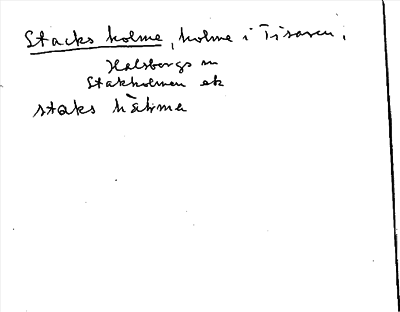 Stacks holme, holme i Tisaren,
Halsbergs sn
Stakholmen ek
staks hà̊lma